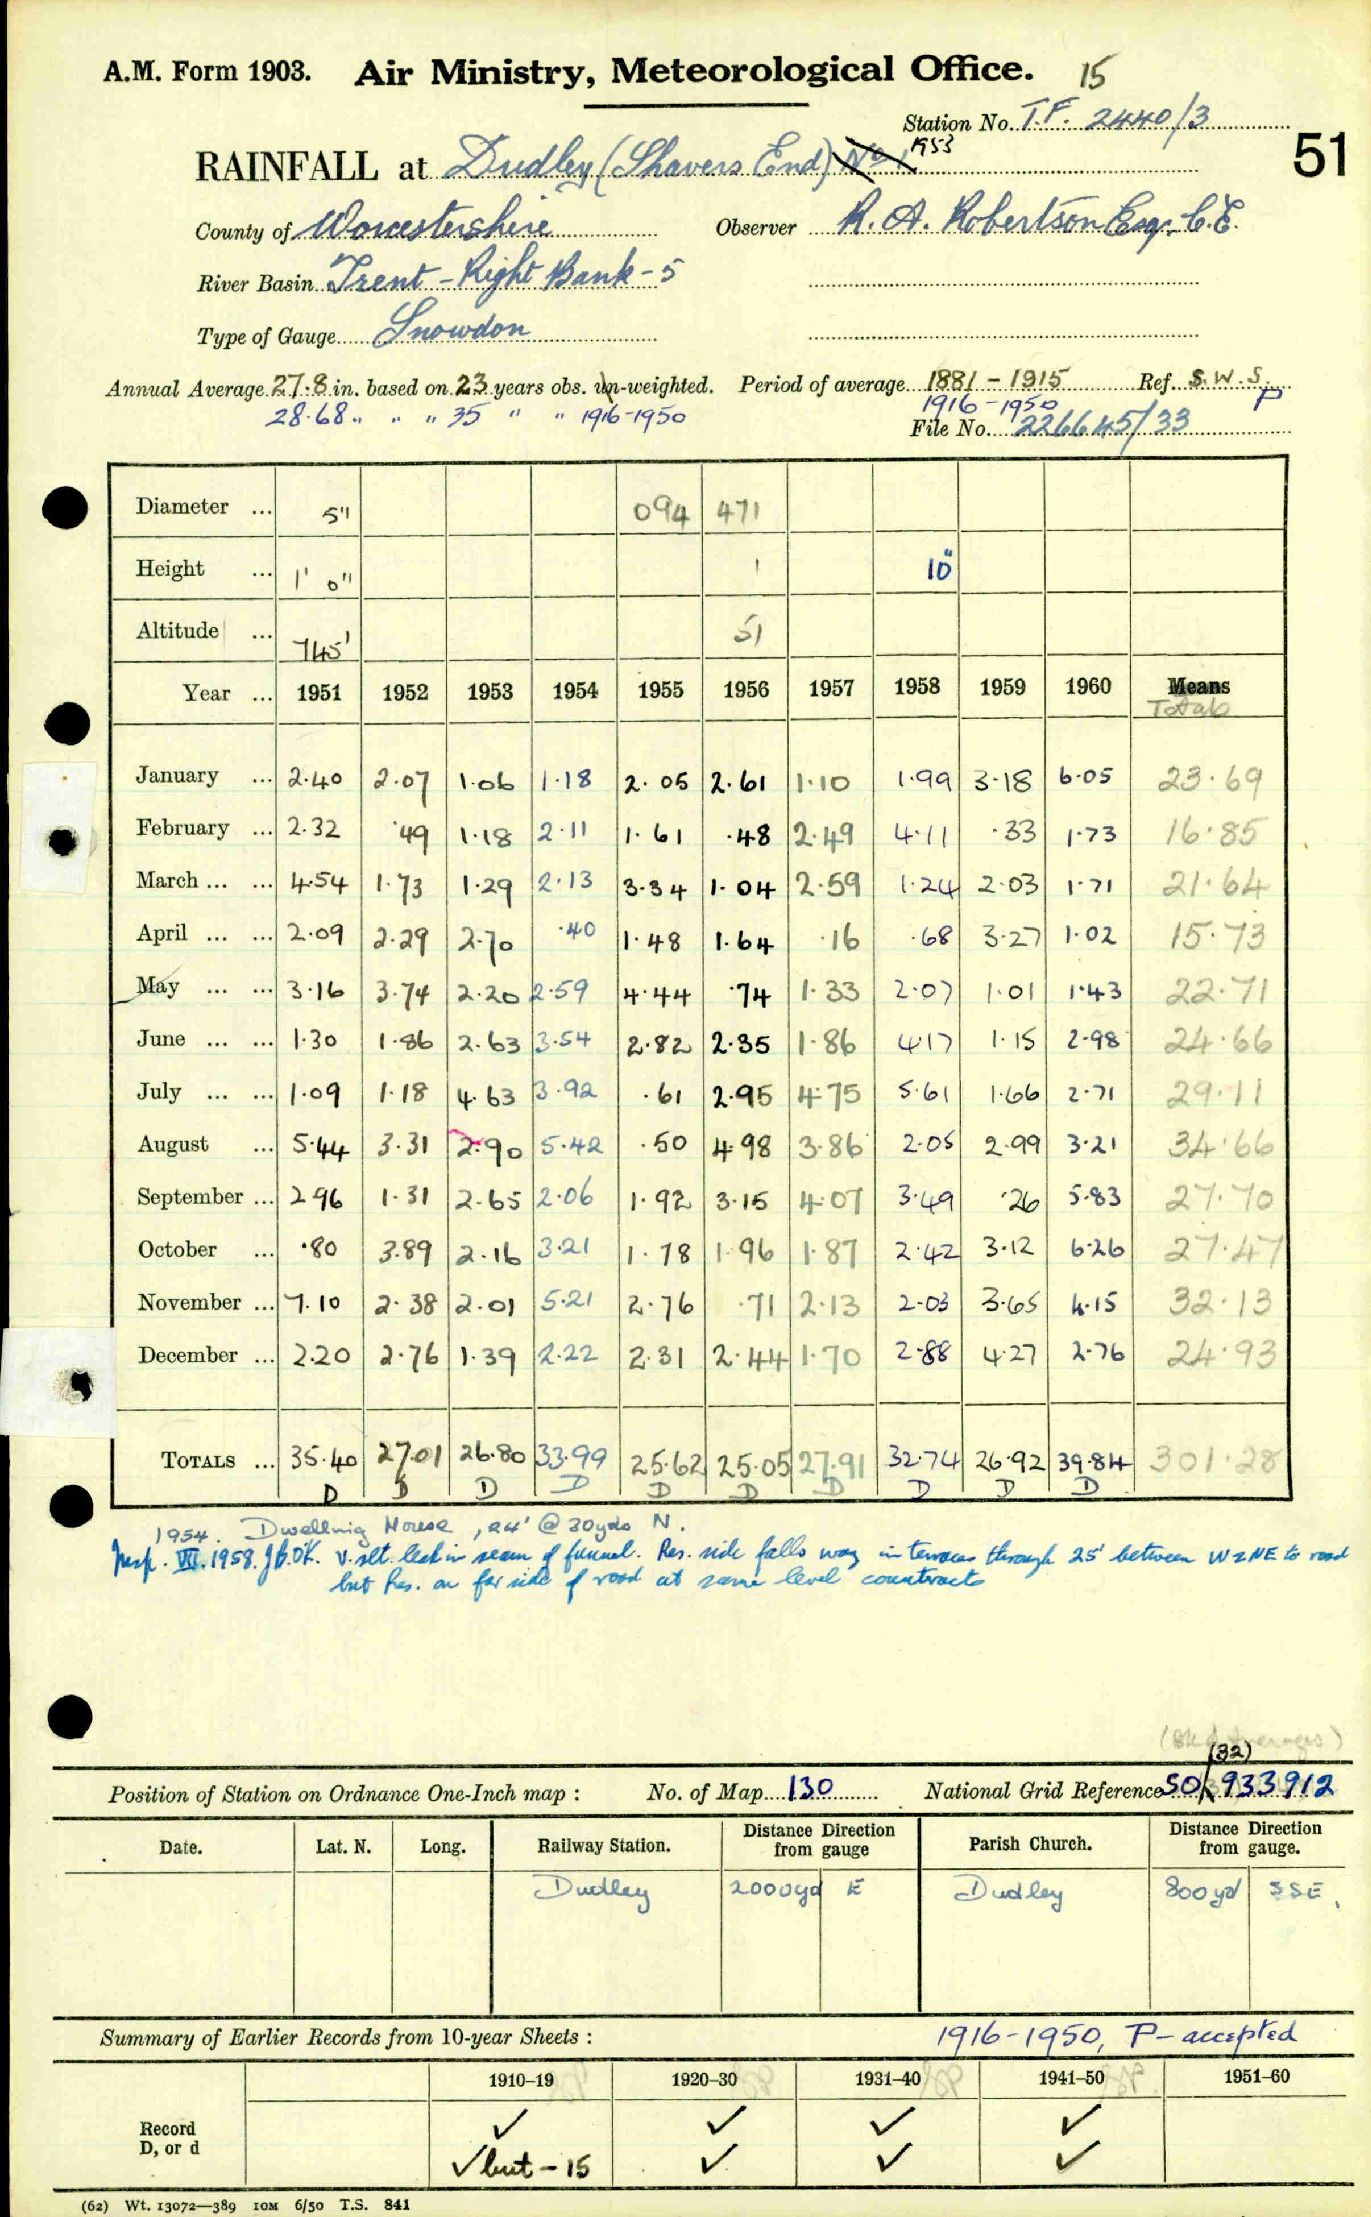 A.M. Form 1903. Air Ministry, Meteorological Office. 15
Station No. T.F. 2440/3
51
RAINFALL at Dudley (Shavers End) No 1 1953
County of Worcestershire Observer R. A. Robertson Esq. C.E.
River Basin Trent - Right Bank - 5
Type of Gauge Snowdon
Annual Average 27.8 in. based on 23 years obs. un-weighted. Period of average 1881 - 1915 Ref. S.W.S. P
28.68 " " " 35 " " 1916-1950 1916-1950
File No. 226645/33
Diameter ... 5" 094 471
Height ... 1' 0" 1 10"
Altitude ... 745' 51
Year ... 1951 1952 1953 1954 1955 1956 1957 1958 1959 1960 Means Totals
January ... 2.40 2.07 1.06 1.18 2.05 2.61 1.10 1.99 3.18 6.05 23.69
February ... 2.32 .49 1.18 2.11 1.61 .48 2.49 4.11 .33 1.73 16.85
March ... ... 4.54 1.73 1.29 2.13 3.34 1.04 2.59 1.24 2.03 1.71 21.64
April ... ... 2.09 2.29 2.70 .40 1.48 1.64 .16 .68 3.27 1.02 15.73
May ... ... 3.16 3.74 2.20 2.59 4.44 .74 1.33 2.07 1.01 1.43 22.71
June ... ... 1.30 1.86 2.63 3.54 2.82 2.35 1.86 4.17 1.15 2.98 24.66
July ... ... 1.09 1.18 4.63 3.92 .61 2.95 4.75 5.61 1.66 2.71 29.11
August ... 5.44 3.31 2.90 5.42 .50 4.98 3.86 2.05 2.99 3.21 34.66
September ... 2.96 1.31 2.65 2.06 1.92 3.15 4.07 3.49 .26 5.83 27.70
October ... .80 3.89 2.16 3.21 1.78 1.96 1.87 2.42 3.12 6.26 27.47
November ... 7.10 2.38 2.01 5.21 2.76 .71 2.13 2.03 3.65 4.15 32.13
December ... 2.20 2.76 1.39 2.22 2.31 2.44 1.70 2.88 4.27 2.76 24.93
TOTALS ... 35.40 27.01 26.80 33.99 25.62 25.05 27.91 32.74 26.92 39.84 301.28
D D D D D D D D D D
1954. Dwelling House, 24' @ 30yds N.
Insp. VII. 1958. J.G.O'K. V. slt. leak in seam of funnel. Res. side falls way in terraces through 25' between W & NE to road
but Res. on far side of road at same level counteracts
(32)
Position of Station on Ordnance One-Inch map : No. of Map 130 National Grid Reference SO/933912
Date. Lat. N. Long. Railway Station. Distance Direction from gauge Parish Church. Distance Direction from gauge.
Dudley 2000yd E Dudley 800yd SSE.
Summary of Earlier Records from 10-year Sheets : 1916-1950, P - accepted
1910–19 1920–30 1931–40 1941–50 1951–60
Record ✓ ✓ ✓ ✓
D, or d ✓ but - 15 ✓ ✓ ✓
(62) Wt. 13072—389 10M 6/50 T.S. 841